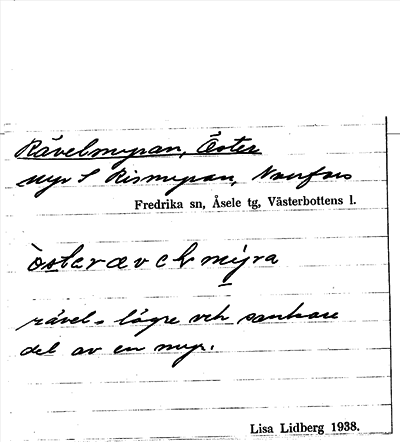 Rävelmyran, Öster
myr S Rismyran, Norrfors
Fredrika sn, Åsele tg, Västerbottens l.
òsterævelmýra
rävel = lägre och sankare
del av en myr.
Lisa Lidberg 1938.